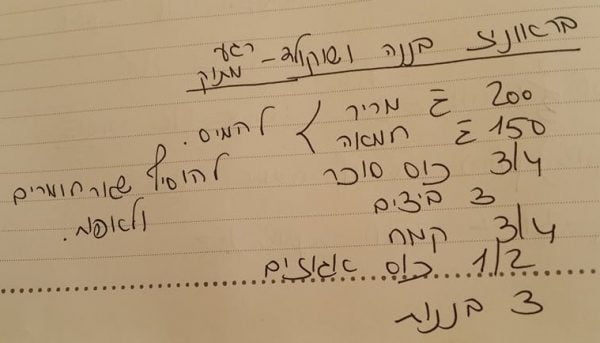 בראוניז בננה ושוקולד - רגע מתוק
200 ג מריר
150 ג חמאה
להמיס.
3/4 כוס סוכר
3 ביצים
3/4 קמח
1/2 כוס אגוזים
3 בננות
להוסיף שאר חומרים
ולאפות.